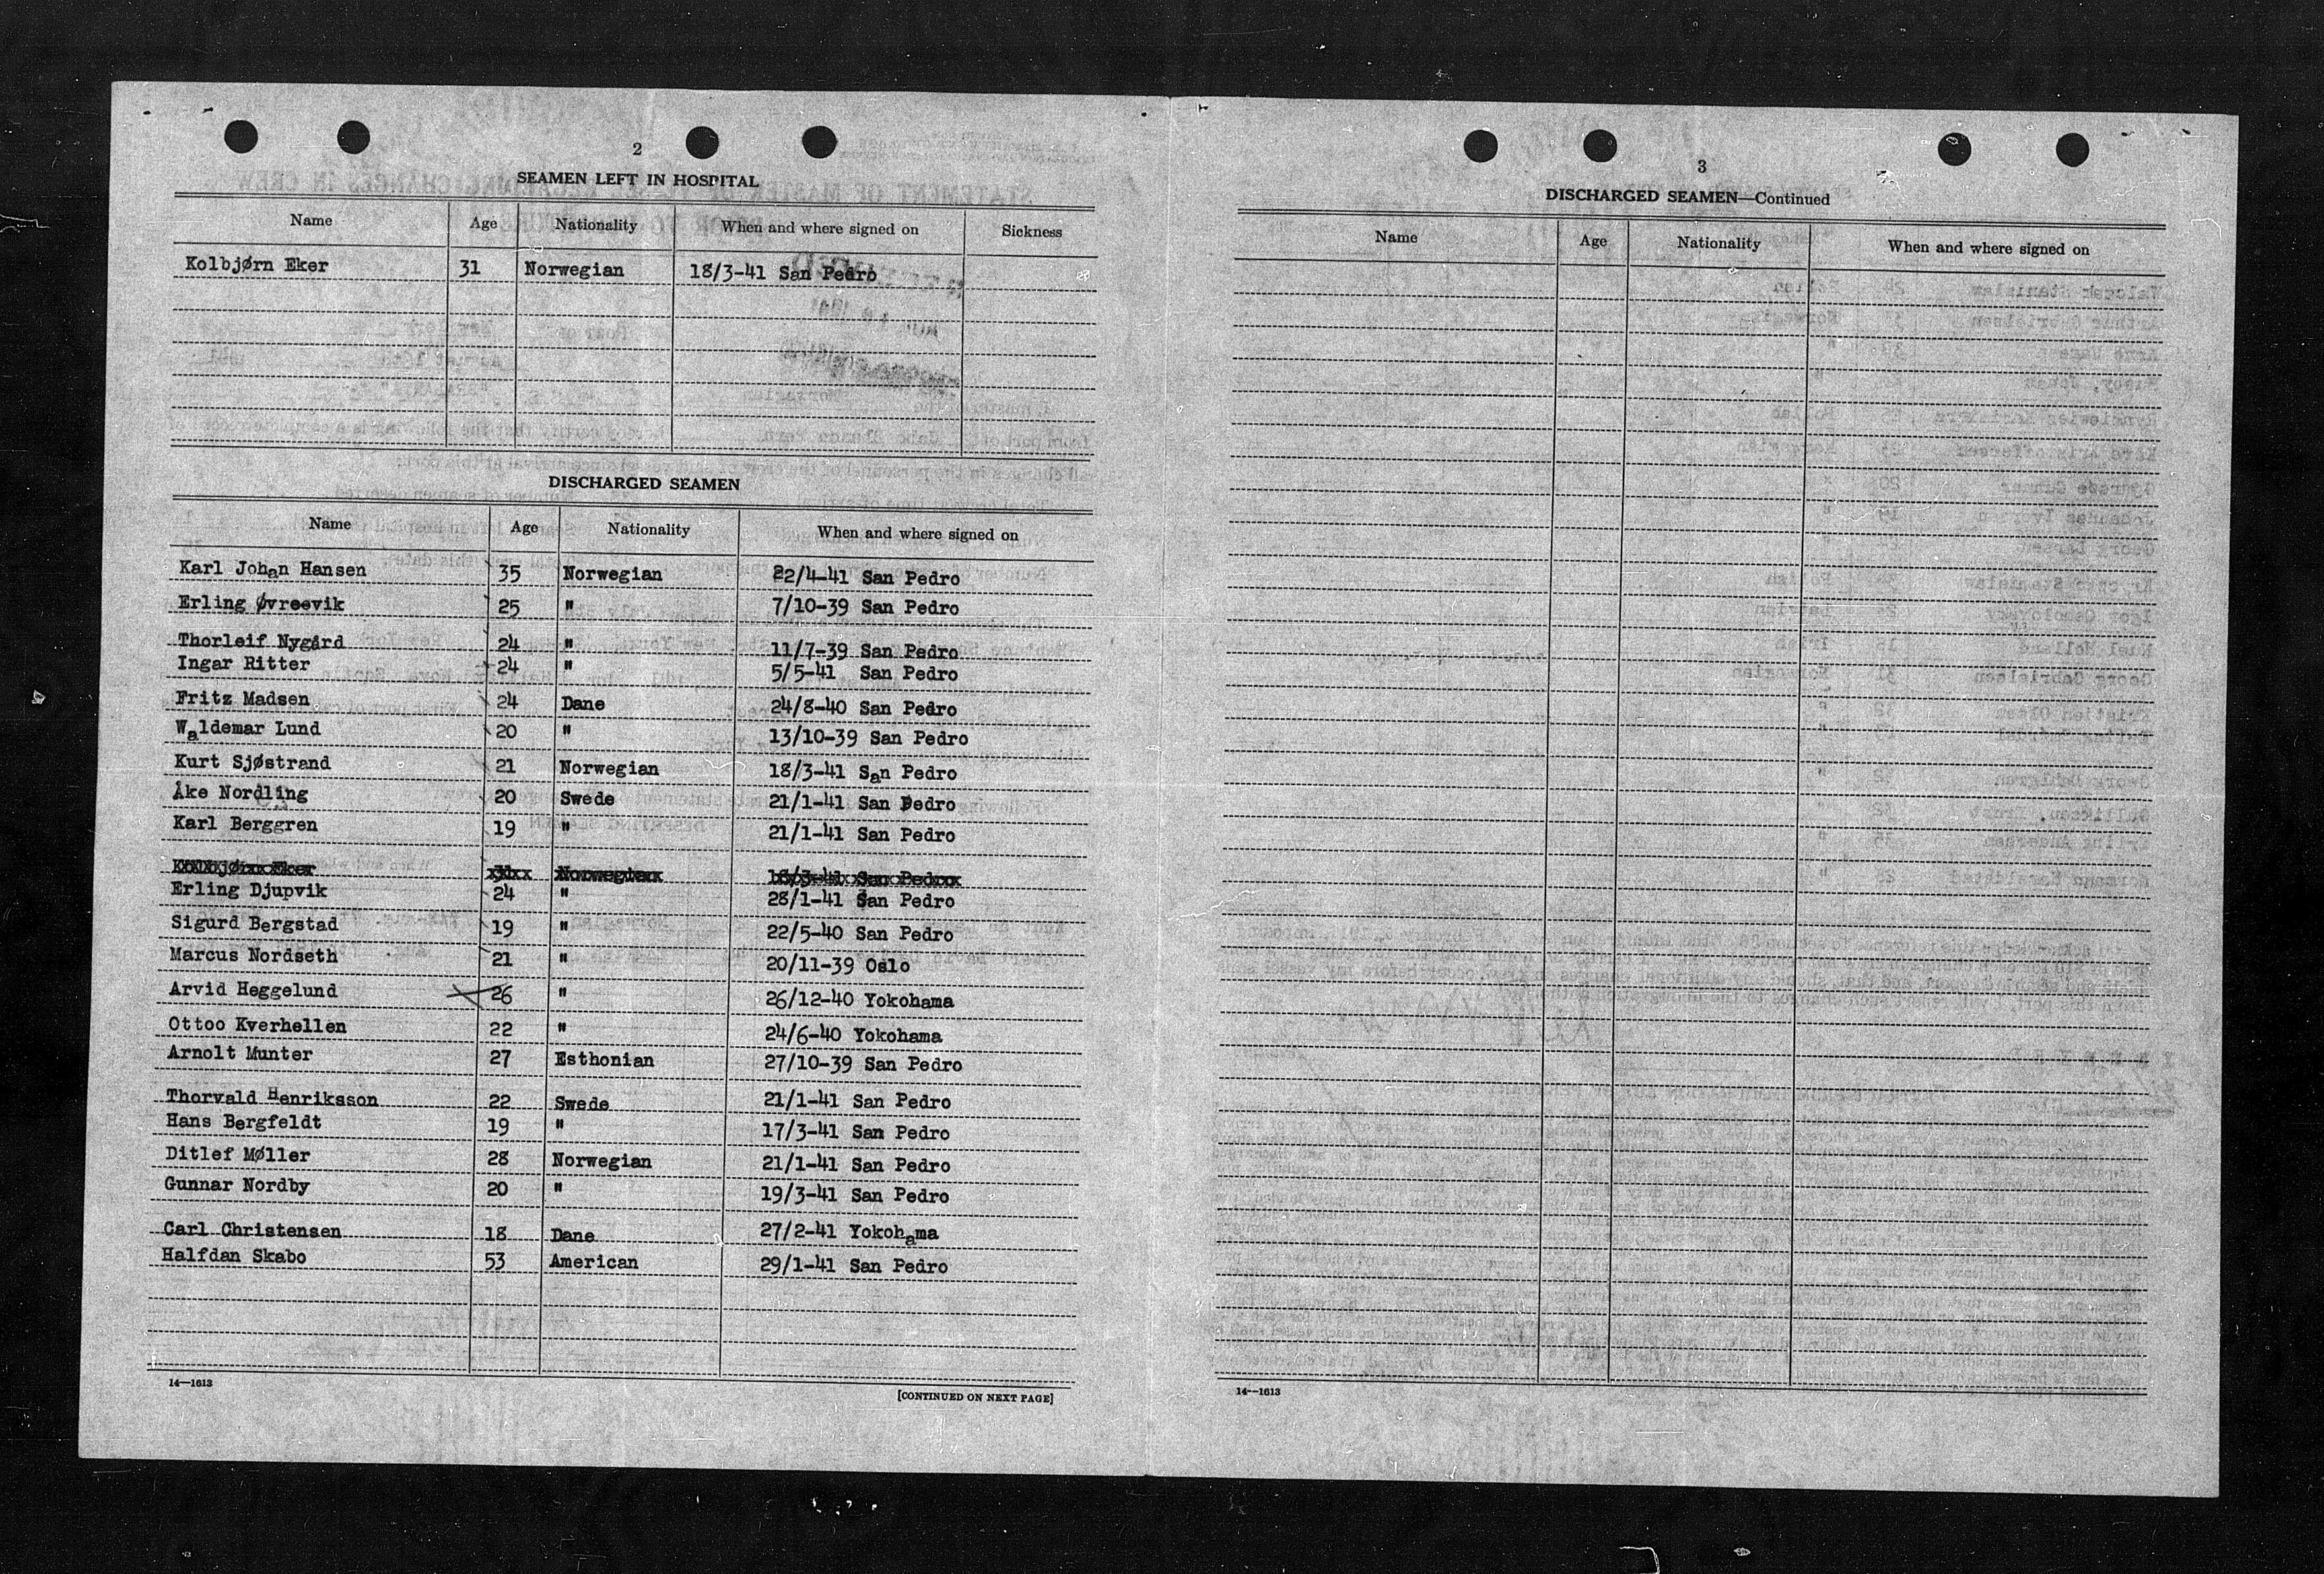 2
SEAMEN LEFT IN HOSPITAL
Name Age Nationality When and where signed on Sickness
Kolbjørn Eker 31 Norwegian 18/3-41 San Pedro
DISCHARGED SEAMEN
Name Age Nationality When and where signed on
Karl Johan Hansen 35 Norwegian 22/4-41 San Pedro
Erling Øvreevik 25 " 7/10-39 San Pedro
Thorleif Nygård 24 " 11/7-39 San Pedro
Ingar Ritter 24 " 5/5-41 San Pedro
Fritz Madsen 24 Dane 24/8-40 San Pedro
Waldemar Lund 20 " 13/10-39 San Pedro
Kurt Sjøstrand 21 Norwegian 18/3-41 San Pedro
Åke Nordling 20 Swede 21/1-41 San Pedro
Karl Berggren 19 " 21/1-41 San Pedro
Erling Djupvik 24 " 28/1-41 San Pedro
Sigurd Bergstad 19 " 22/5-40 San Pedro
Marcus Nordseth 21 " 20/11-39 Oslo
Arvid Heggelund 26 " 26/12-40 Yokohama
Ottoo Kverhellen 22 " 24/6-40 Yokohama
Arnolt Munter 27 Esthonian 27/10-39 San Pedro
Thorvald Henriksson 22 Swede 21/1-41 San Pedro
Hans Bergfeldt 19 " 17/3-41 San Pedro
Ditlef Møller 28 Norwegian 21/1-41 San Pedro
Gunnar Nordby 20 " 19/3-41 San Pedro
Carl Christensen 18 Dane 27/2-41 Yokohama
Halfdan Skabo 53 American 29/1-41 San Pedro
14—1613
[CONTINUED ON NEXT PAGE]
3
DISCHARGED SEAMEN—Continued
Name Age Nationality When and where signed on
14—1613